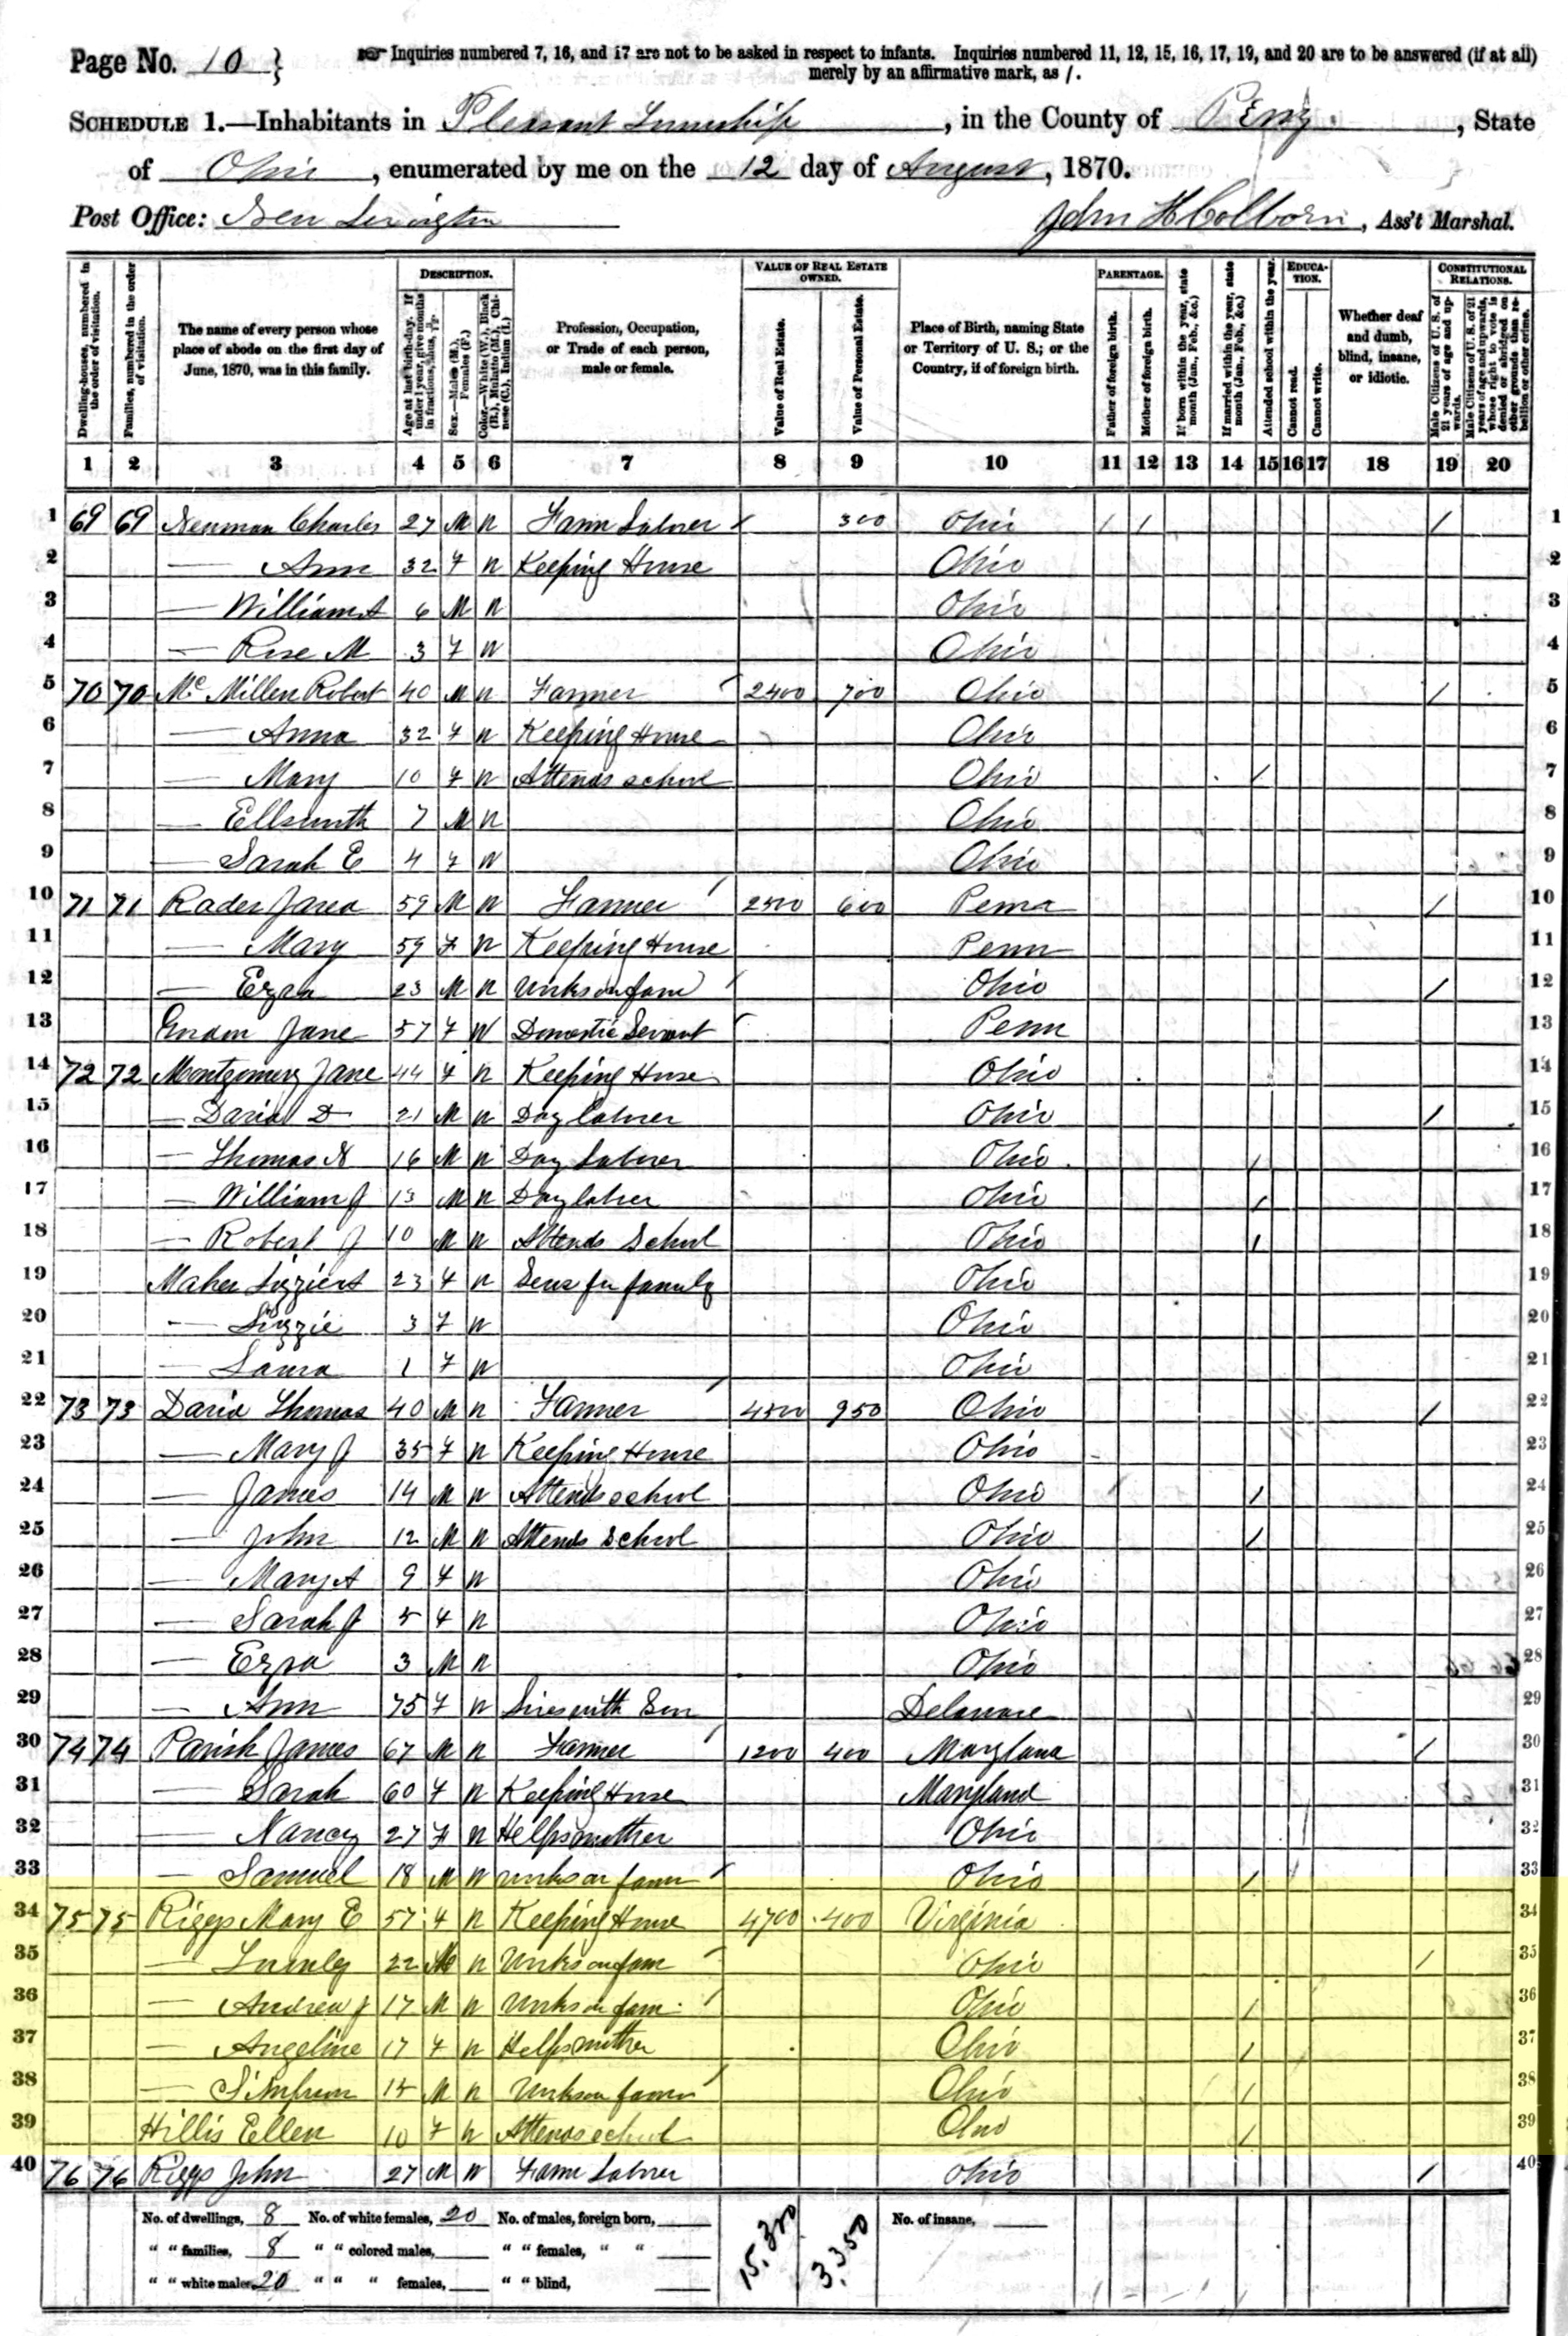 Page No. 10 }
☞ Inquiries numbered 7, 16, and 17 are not to be asked in respect to infants. Inquiries numbered 11, 12, 15, 16, 17, 19, and 20 are to be answered (if at all)
merely by an affirmative mark, as /.
SCHEDULE 1.—Inhabitants in Pleasant Township, in the County of Perry, State
of Ohio, enumerated by me on the 12 day of August, 1870.
Post Office: New Lexington
John H Colborn, Ass't Marshal.
Dwelling-houses, numbered in the order of visitation.
Families, numbered in the order of visitation.
The name of every person whose place of abode on the first day of June, 1870, was in this family.
DESCRIPTION.
Age at last birth-day. If under 1 year, give months in fractions, thus, 3/12.
Sex.—Males (M.), Females (F.)
Color.—White (W.), Black (B.), Mulatto (M.), Chinese (C.), Indian (I.)
Profession, Occupation, or Trade of each person, male or female.
VALUE OF REAL ESTATE OWNED.
Value of Real Estate.
Value of Personal Estate.
Place of Birth, naming State or Territory of U. S.; or the Country, if of foreign birth.
PARENTAGE.
Father of foreign birth.
Mother of foreign birth.
If born within the year, state month (Jan., Feb., &c.)
If married within the year, state month (Jan., Feb., &c.)
Attended school within the year.
EDUCATION.
Cannot read.
Cannot write.
Whether deaf and dumb, blind, insane, or idiotic.
CONSTITUTIONAL RELATIONS.
Male Citizens of U. S. of 21 years of age and upwards.
Male Citizens of U. S. of 21 years of age and upwards, whose right to vote is denied or abridged on other grounds than rebellion or other crime.
1 2 3 4 5 6 7 8 9 10 11 12 13 14 15 16 17 18 19 20
1 69 69 Neuman Charles 27 M W Farm Laborer / 300 Ohio / / / 1
2 — Ann 32 F W Keeping House Ohio 2
3 — William A 6 M W Ohio 3
4 — Rose M 3 F W Ohio 4
5 70 70 Mc Millen Robert 40 M W Farmer / 2400 700 Ohio / 5
6 — Anna 32 F W Keeping House Ohio 6
7 — Mary 10 F W Attends school Ohio / 7
8 — Ellsworth 7 M W Ohio 8
9 — Sarah E 4 F W Ohio 9
10 71 71 Rader 59 M W Farmer / 2500 600 Penna / 10
11 — Mary 59 F W Keeping House Penn 11
12 — Ezra 23 M W Works on farm / Ohio / 12
13 Jane 57 F W Domestic Servant / Penn 13
14 72 72 Montgomery Jane 44 F W Keeping House Ohio 14
15 — David D 21 M W Day laborer Ohio / 15
16 — Thomas N 16 M W Day Laborer Ohio / 16
17 — William J 13 M W Day laborer Ohio / 17
18 — Robert J 10 M W Attends School Ohio / 18
19 Maher Lizzie A 23 F W Sews for family Ohio 19
20 — Lizzie 3 F W Ohio 20
21 — Laura 1 F W Ohio 21
22 73 73 David Thomas 40 M W Farmer / 4500 950 Ohio / 22
23 — Mary J 35 F W Keeping House Ohio 23
24 — James 14 M W Attends school Ohio / 24
25 — John 12 M W Attends School Ohio / 25
26 — Mary A 9 F W Ohio 26
27 — Sarah J 5 F W Ohio 27
28 — Ezra 3 M W Ohio 28
29 — Ann 75 F W Lives with Son Delaware 29
30 74 74 Parish James 67 M W Farmer / 1200 400 Maryland / 30
31 — Sarah 60 F W Keeping House Maryland 31
32 — Nancy 27 F W Helps mother Ohio 32
33 — Samuel 18 M W works on farm / Ohio / 33
34 75 75 Riggs Mary E 57 F W Keeping House 4700 400 Virginia 34
35 — Lumley 22 M W Works on farm / Ohio / 35
36 — Andrew J 17 M W Works on farm / Ohio / 36
37 — Angeline 17 F W Helps mother Ohio / 37
38 — 15 M W Works on farm / Ohio / 38
39 Hillis Ellen 10 F W Attends school Ohio / 39
40 76 76 Riggs John 27 M W Farm Laborer Ohio / 40
No. of dwellings, 8 No. of white females, 20 No. of males, foreign born, 15,300 3,350 No. of insane,
" " families, 8 " " colored males, " " females, " "
" " white males, 20 " " " females, " " blind,